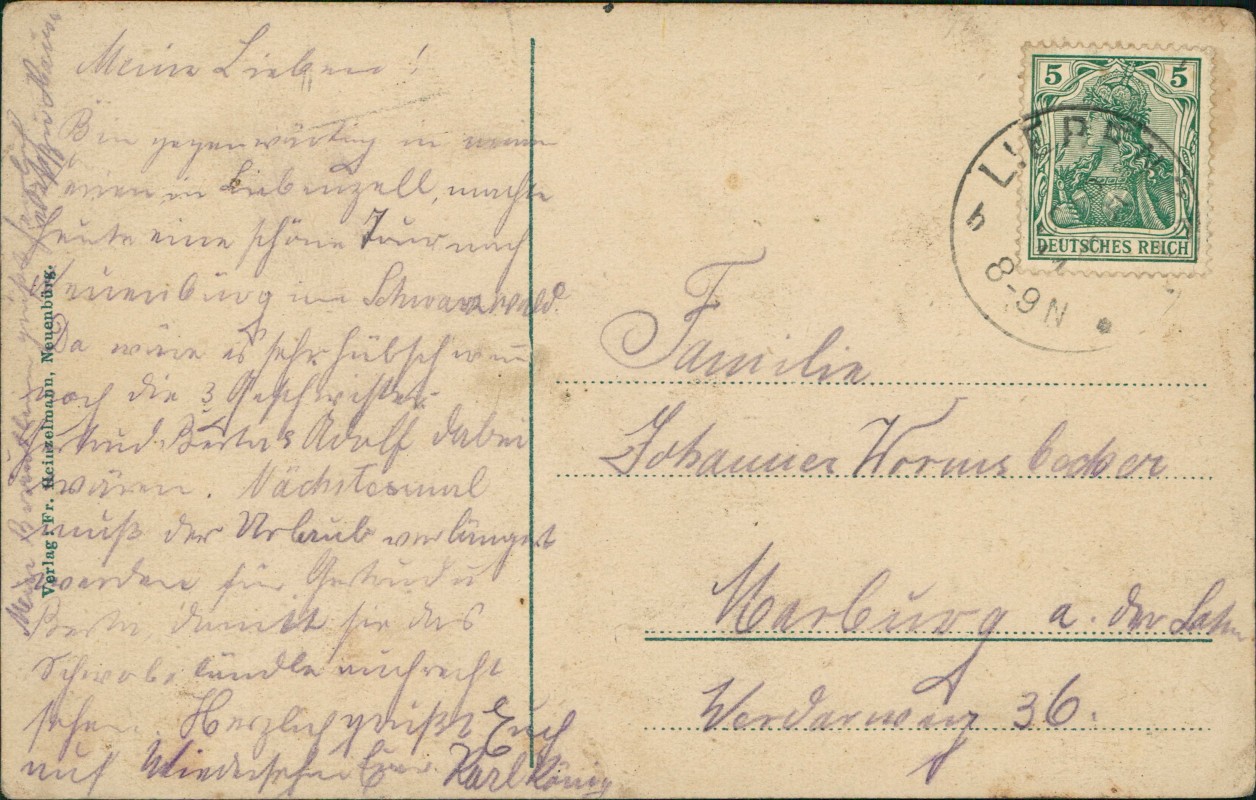 Meine Lieben!
Bin gegenwärtig in meinen
in Liebenzell, machte
heute eine schöne Tour nach
Neuenbürg im Schwarzwald.
Da wäre es sehr hübsch wenn
noch die 3 Geschwister
Berta Adolf dabei
wären. Nächstesmal
muß der Urlaub verlängert
werden für Gertrud u
Berta damit sie das
Schwabeländle auch recht
sehen. Herzlich grüßt Euch
auf Wiedersehn Euer Karl König
Mein grüßt
Verlag Fr. Heinzelmann, Neuenbürg.
5 5
DEUTSCHES REICH
LIEBENZELL
8-9N
Familie
Johannes Wormsbecker
Marburg a. der Lahn
36.